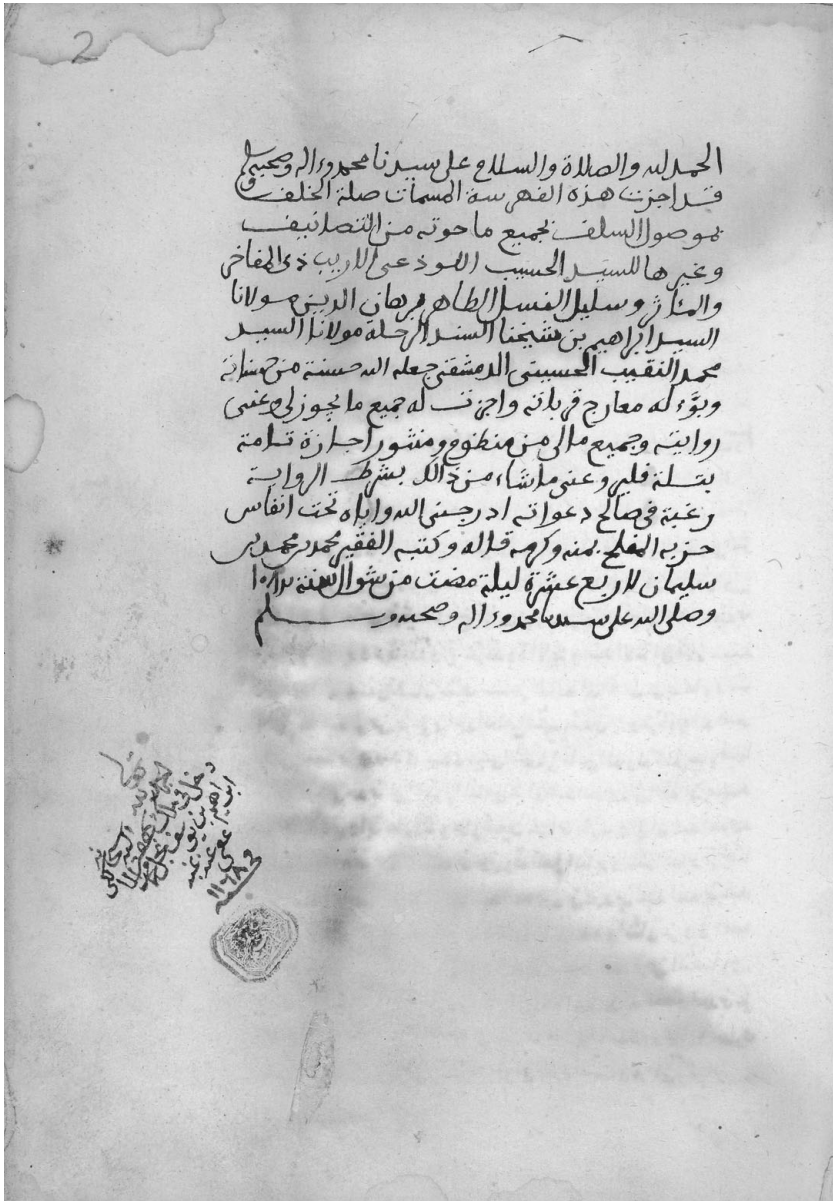 2
الحمد لله والصلاة والسلام على سيدنا محمد وءاله وصحبه
قد اجزت هذه الفهرسة المسمات صلة الخلف
بموصول السلف بجميع ما حوته من التصانيف
وغيرها للسيد الحسيب اللوذعى الاريب ذى المفاخر
والمئاثر وسليل النسل الطاهر برهان الدين مولانا
السيد ابراهيم بن شيخنا السند الرحلة مولانا السيد
محمد النقيب الحسينى الدمشقى جعله الله حسنة من حسناته
وبوّء له معارج قرباته واجزت له جميع ما يجوز لى وعنى
روايته وجميع مالى من منظوم ومنثور اجازة تامة
فليرو عنى ما شاء من ذالك بشرط الرواية
رغبة فى صالح دعواته ادرجنى الله واياه تحت انفاس
حزبه المفلح بمنه وكرمه قاله وكتبه الفقير محمد بن محمد بن
سليمان لاربع عشرة ليلة مضت من شوال سنة
وصلى الله على سيدنا محمد وءاله وصحبه وسلم
عفى عنه